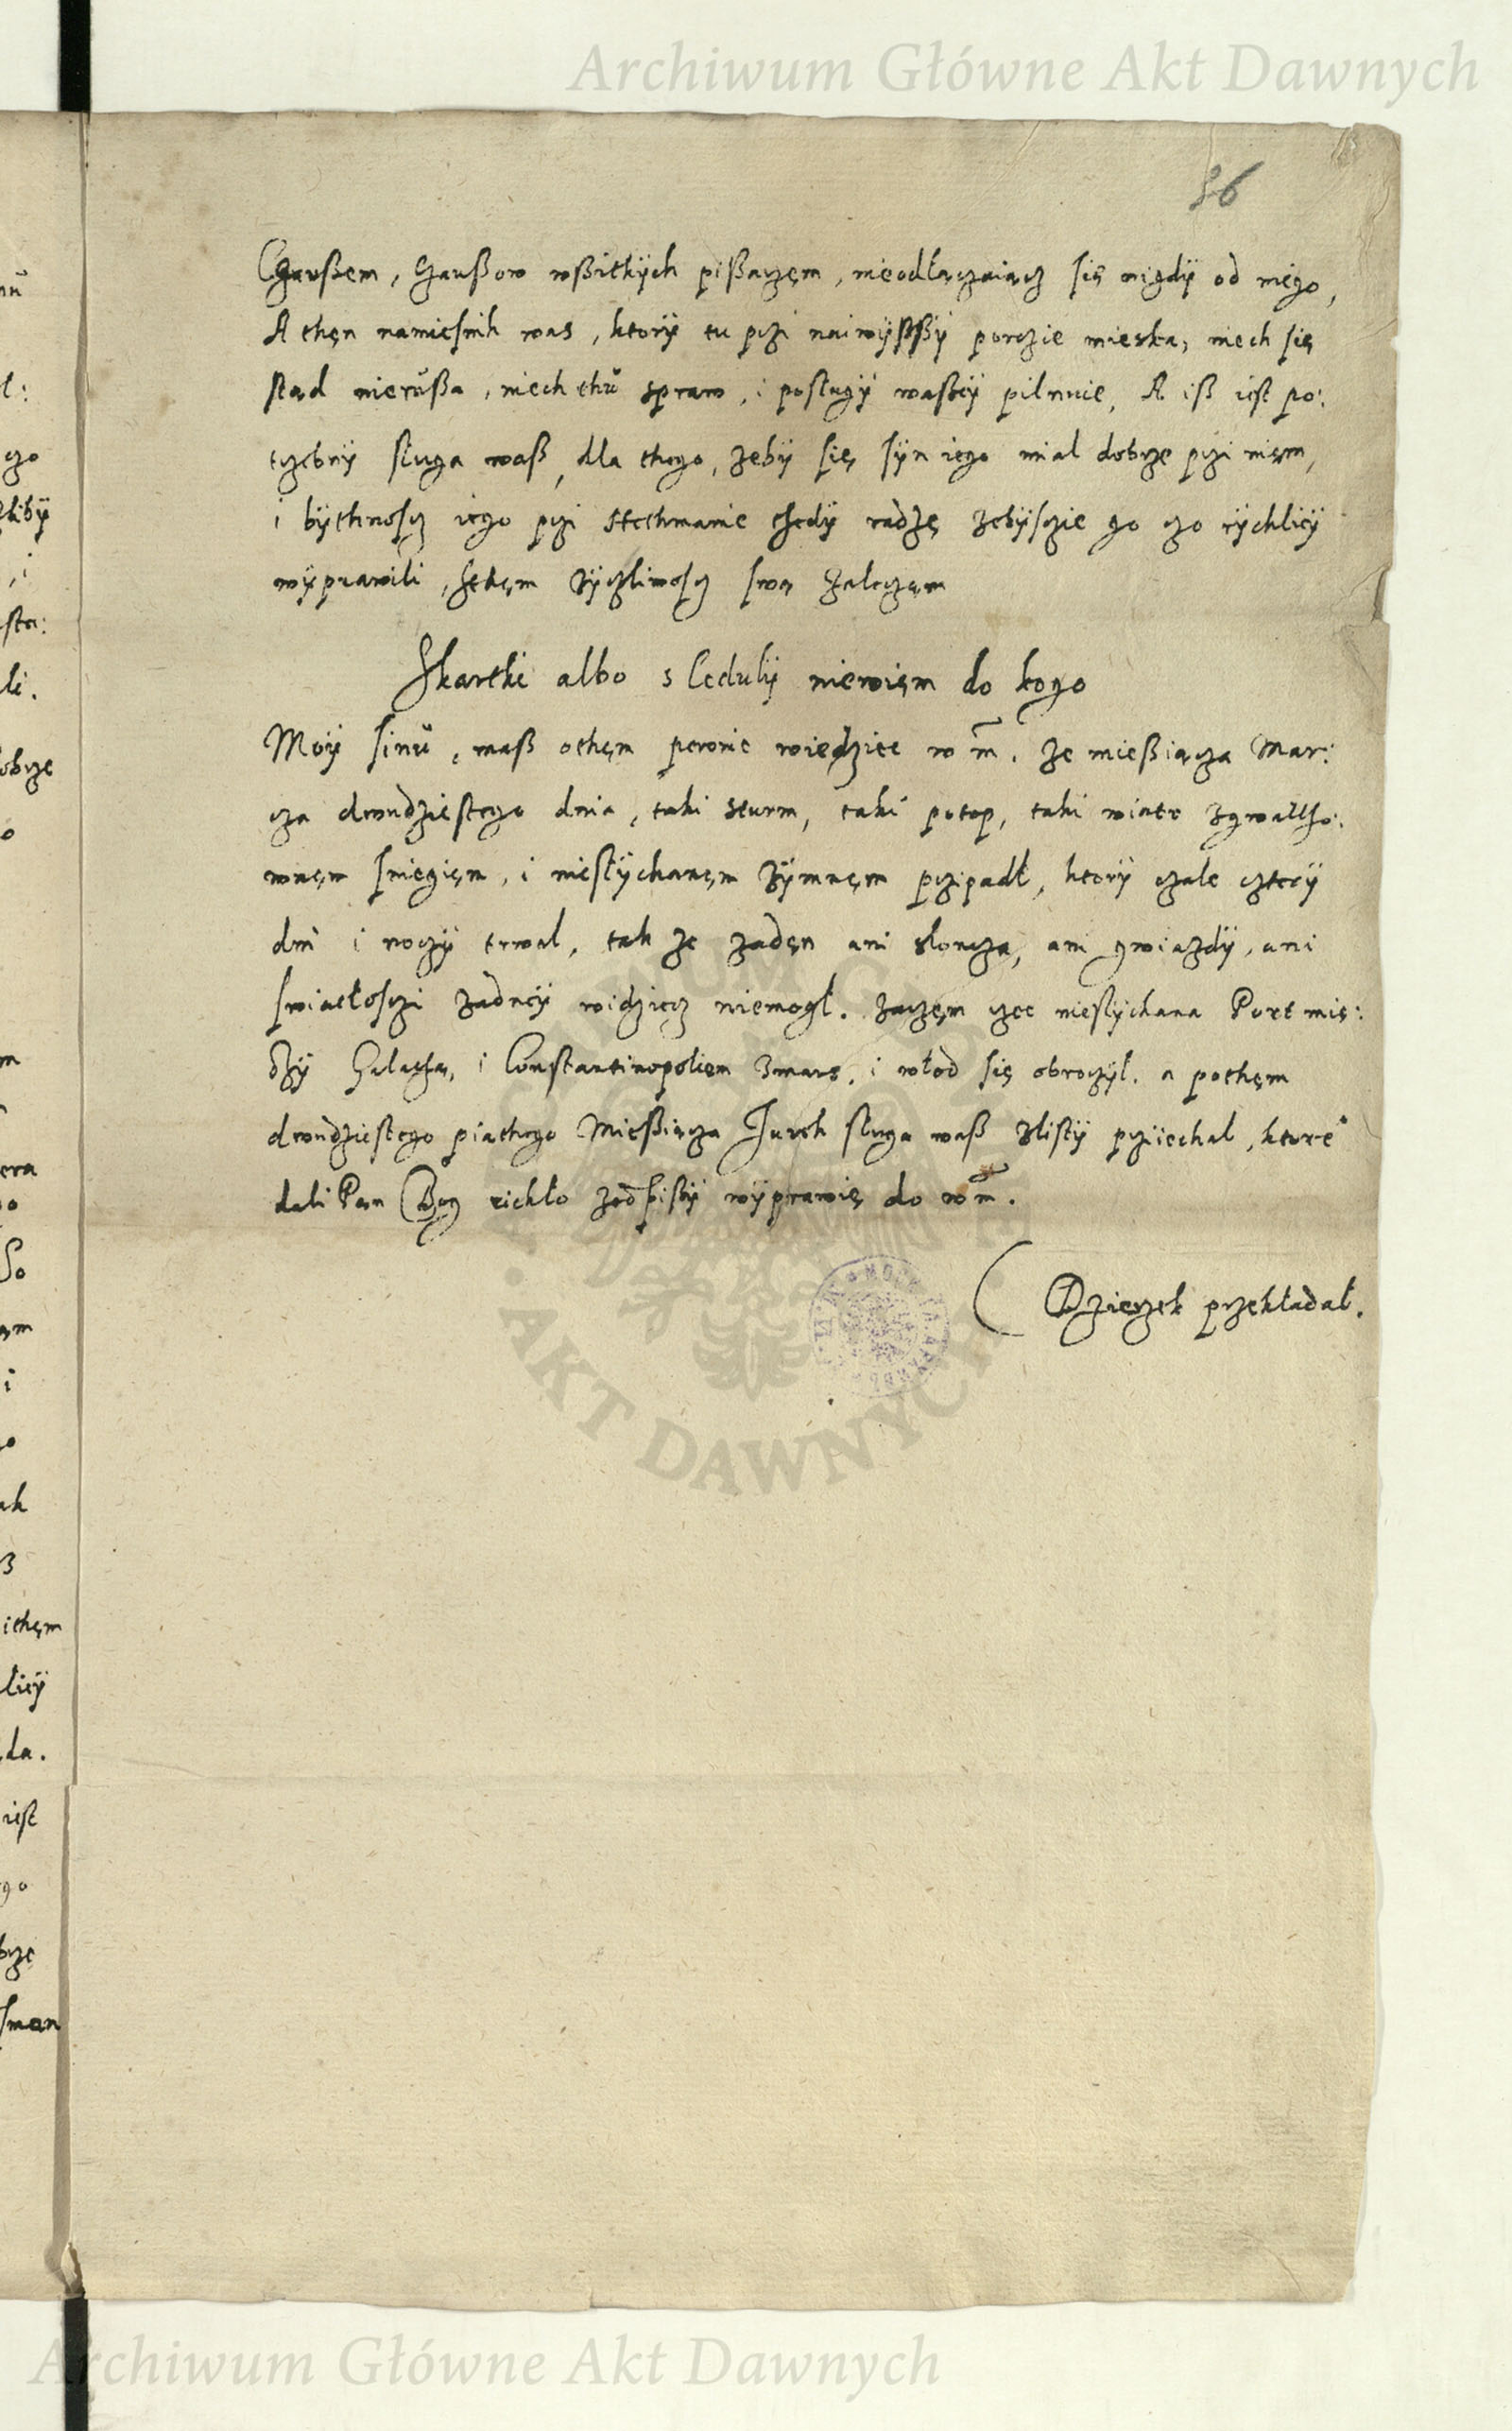 Archiwum Główne Akt Dawnych
36
Czaußem, Czaußow wßitkÿch pißaczęm, nieodłączaiącz się nigdÿ od niego,
A thęn namiesnik was, ktorÿ tu przi naiwÿßßÿ porczie mieska, niech się
stąd nierŭßa, niech thŭ spraw, i posługÿ waßeÿ pilnuie, A iß iest po:
trzebnÿ sługa waß, dla thego, zebÿ się sÿn iego miał dobrze przi nięm,
i bÿthnoscz iego przi Hethmanie thedÿ radzę zebÿsczie go czo rÿchleÿ
wÿprawili, zethęm zÿczliwoscz swą zaleczęm
Zkartki albo s Cedulÿ niewięm do kogo
Moÿ sinŭ, maß othęm pewnie wiedziec w m̃. ze mießiącza Mar:
cza dwudziestego dnia, taki sturm, taki potop, taki wiatr zgwaltho:
wnęm sniegięm, i niesłÿchanęm zÿmnęm przipadł, ktorÿ czałe czterÿ
dni i noczÿ trwał, tak ze zadęn ani słoncza, ani gwiazdÿ, ani
swiatłosczi zadneÿ widziecz niemogł. zaczęm rzec niesłÿchana Port mię:
dzÿ Galathą, i Constantinopolem zmarz, i w lod się obroczÿł. a pothęm
dwudziestego piathego Mießiącza Jurek sługa waß zlistÿ prziiechał, ktore°
dali Pan Bog richło zodpistÿ wÿprawię do w m̃.
Dzierzek przekładał.
AKT DAWNYCH
Archiwum Główne Akt Dawnych